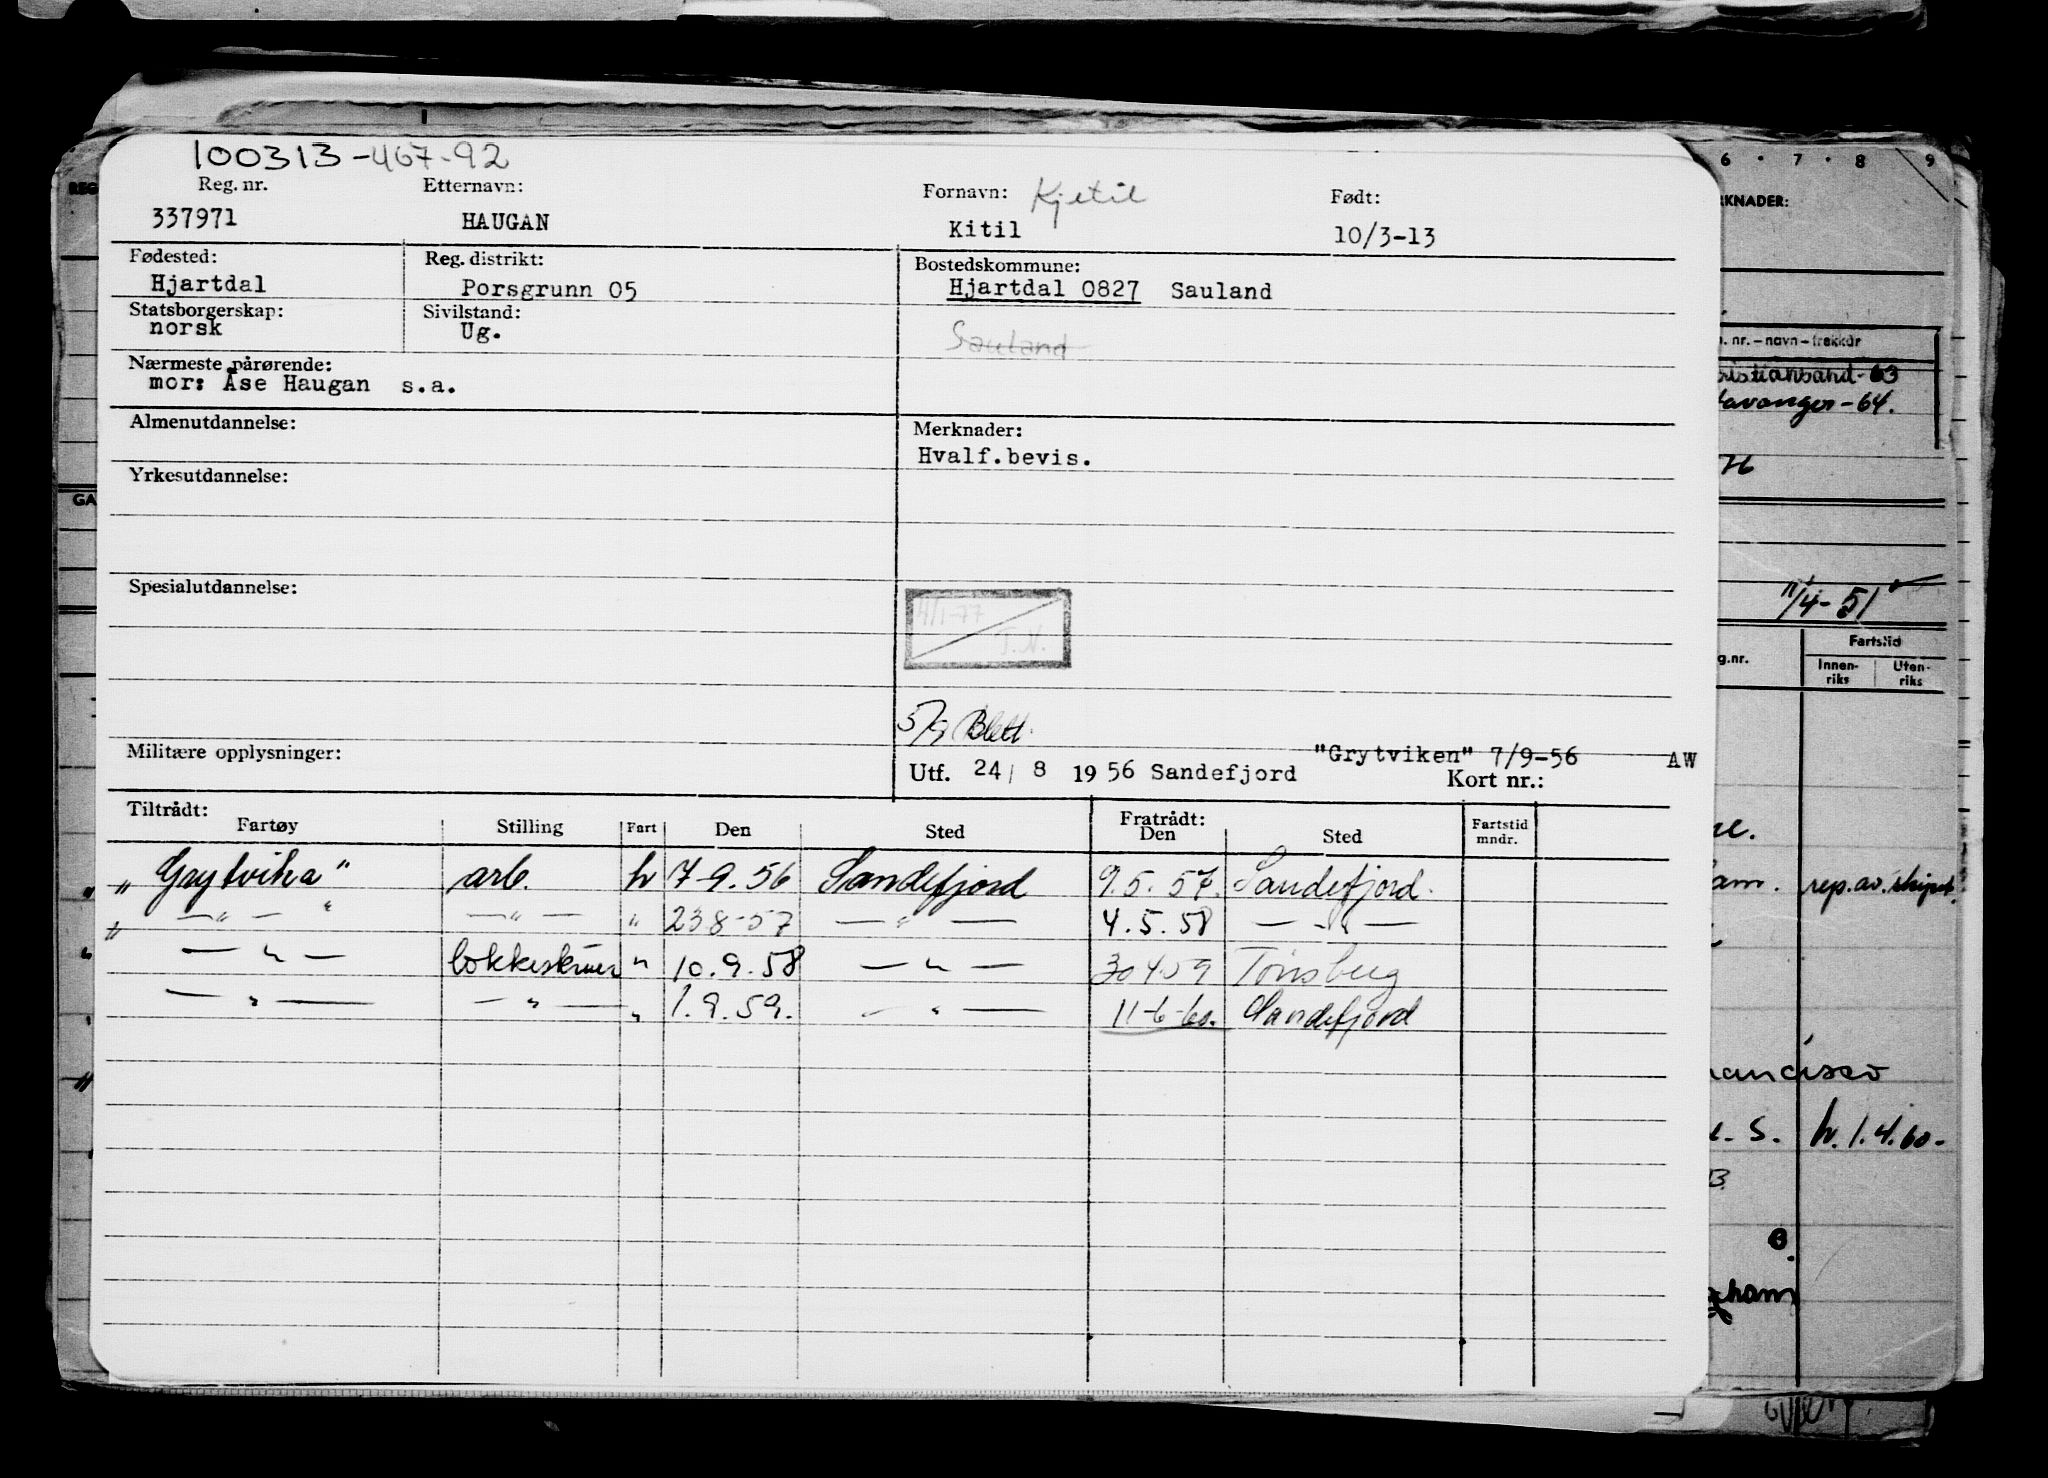 100313-467-92
Reg. nr. Etternavn: Fornavn: Kjetil Født:
337971 HAUGAN Kitil 10/3-13
Fødested: Reg. distrikt: Bostedskommune:
Hjartdal Porsgrunn 05 Hjartdal 0827 Sauland
Statsborgerskap: Sivilstand:
norsk Ug. Sauland
Nærmeste pårørende:
mor: Åse Haugan s.a.
Almenutdannelse: Merknader:
Hvalf.bevis.
Yrkesutdannelse:
Spesialutdannelse:
4/1-77
T.N.
5/9 Blett
Militære opplysninger: "Grytviken" 7/9-56 AW
Utf. 24/ 8 19 56 Sandefjord Kort nr.:
Tiltrådt: Fratrådt:
Fartøy Stilling Fart Den Sted Den Sted Fartstid mndr.
"Grytvika" arb. h 7-9.56 Sandefjord 9.5.57. Sandefjord.
" — " — " — " — " 238-57 — " — 4.5.58 — " —
— " — " 10.9.58 — " — 30459 Tønsberg
— " — — " — " 1.9.59. — " — 11-6-60. Sandefjord
REG
GA
6 · 7 · 8 9
RKNADER:
. nr. – navn – trekkår
ristiansand-63
tavanger-64.
76
11/4-51
g.nr. Fartstid
Innen-riks Uten-riks
am. rep. av. skipet.
rancisco
. S. h. 1.4.60-
B.
ham